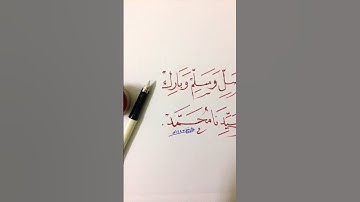 صَلِّ وَسَلِّمْ وَبَارِكْ
سَيِّدِنَا مُحَمَّدْ .